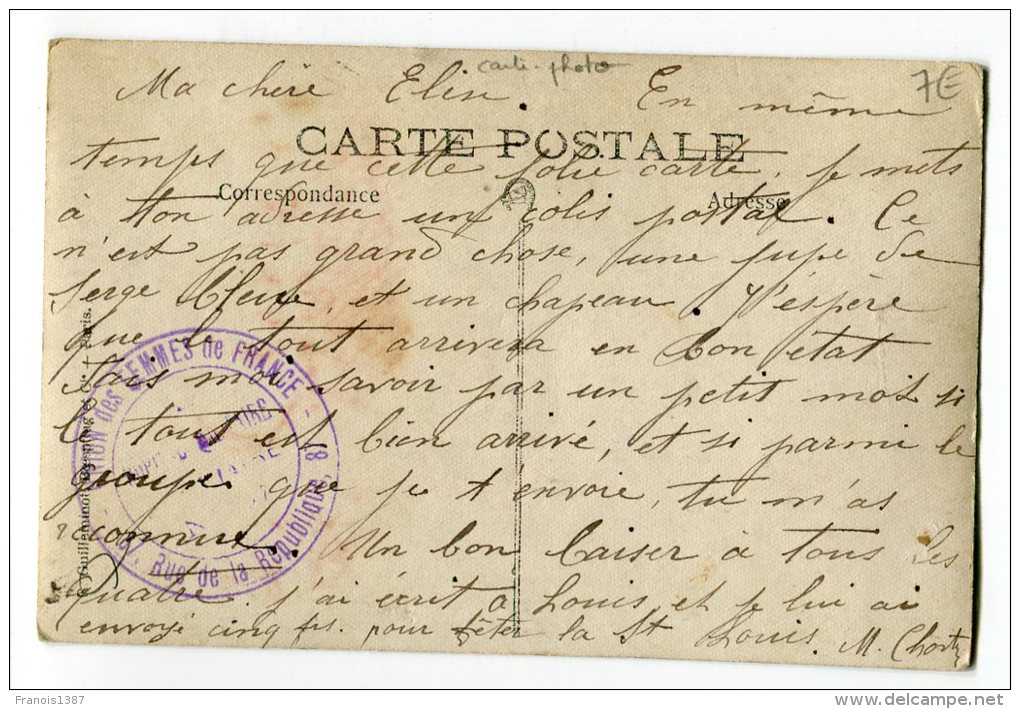 carte-photo
7€
Ma chère Elise. En même
CARTE POSTALE
temps que cette jolie carte, je mets
Correspondance Adresse
à ton adresse un colis postal. Ce
n'est pas grand chose, une jupe de
serge bleue, et un chapeau. J'espère
que le tout arrivera en bon état
fais moi savoir par un petit mot si
le tout est bien arrivé, et si parmi le
groupe que je t'envoie, tu m'as
reconnue. Un bon baiser à tous les
quatre. j'ai écrit à Louis et je lui ai
envoyé cinq frs. pour fêter la St Louis. M.
UNION des FEMMES de FRANCE
Rue de la République, 8
Paris.
Franois1387
www.delcampe.net